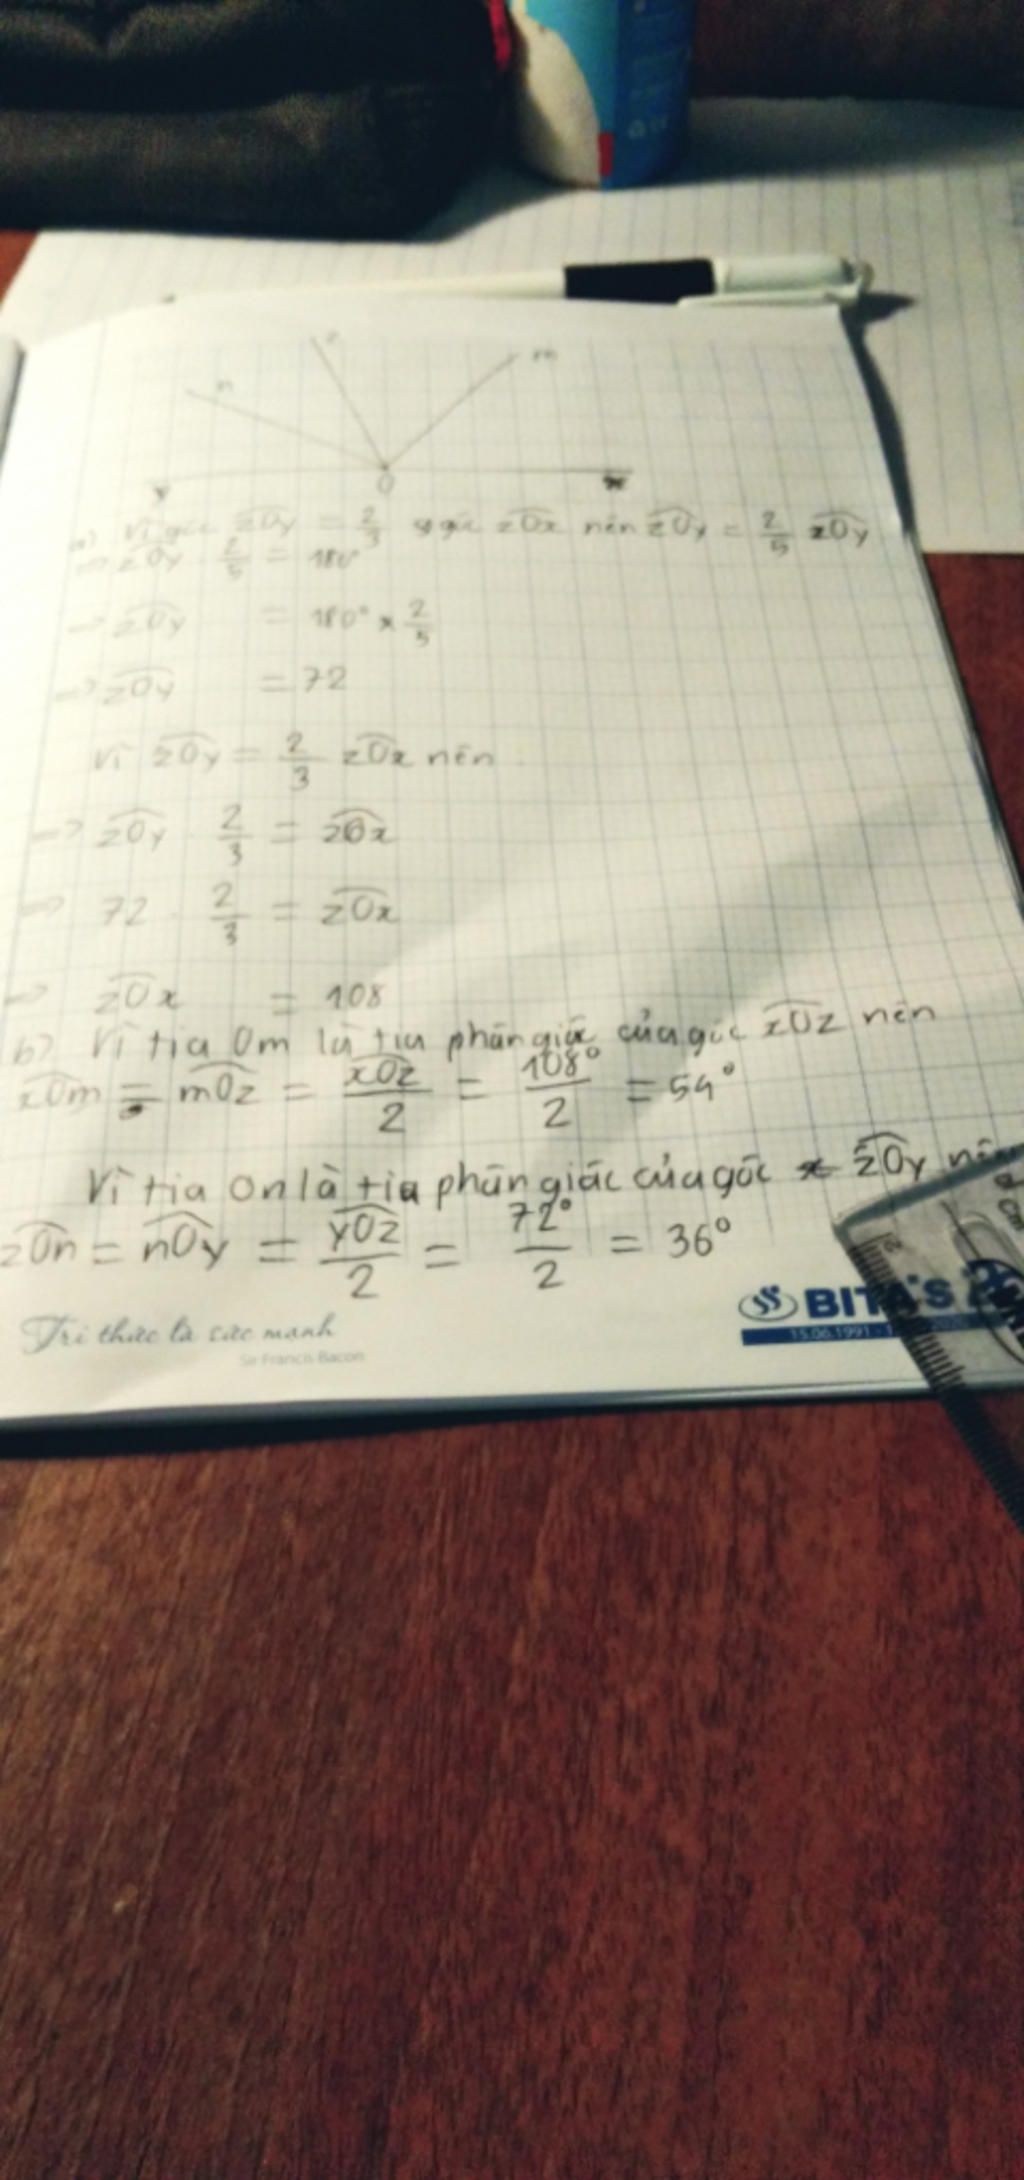 n
m
O
x
a) Vì góc zOy = 2/3 góc zOx nên zOy = 2/5 zOy
=> zOy . 2/5 = 180°
=> zOy = 180° x 2/5
=> zOy = 72
Vì zOy = 2/3 zOx nên
=> zOy . 2/3 = zOx
=> 72 . 2/3 = zOx
=> zOx = 108
b) Vì tia Om là tia phân giác của góc xOz nên
xOm = mOz = xOz/2 = 108°/2 = 54°
Vì tia On là tia phân giác của góc zOy nên
zOn = nOy = yOz/2 = 72°/2 = 36°
Tri thức là sức mạnh
Sir Francis Bacon
BITA'S
15.06.1991
cm